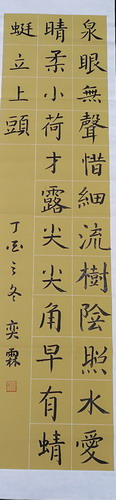 泉眼無聲惜細流樹陰照水愛
晴柔小荷才露尖尖角早有蜻
蜓立上頭
丁酉之冬 奕霖